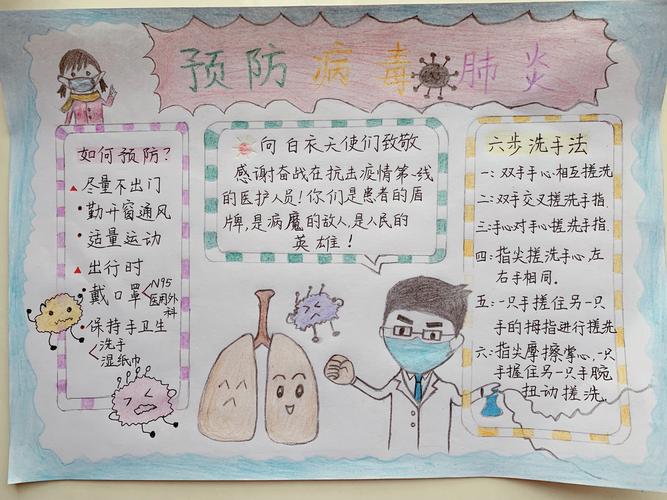 预防病毒肺炎
如何预防?
▲尽量不出门
·勤开窗通风
·适量运动
▲出行时
·戴口罩<N95
医用外
科
·保持手卫生
<洗手
湿纸巾
向白衣天使们致敬
感谢奋战在抗击疫情第一线
的医护人员!你们是患者的盾
牌,是病魔的敌人,是人民的
英雄!
六步洗手法
一:双手手心相互搓洗
二:双手交叉搓洗手指
三:手心对手心搓洗手指.
四:指尖搓洗手心,左
右手相同.
五:一只手搓住另一只
手的拇指进行搓洗
六:指尖摩擦掌心,一只
手握住另一只手腕
扭动搓洗.